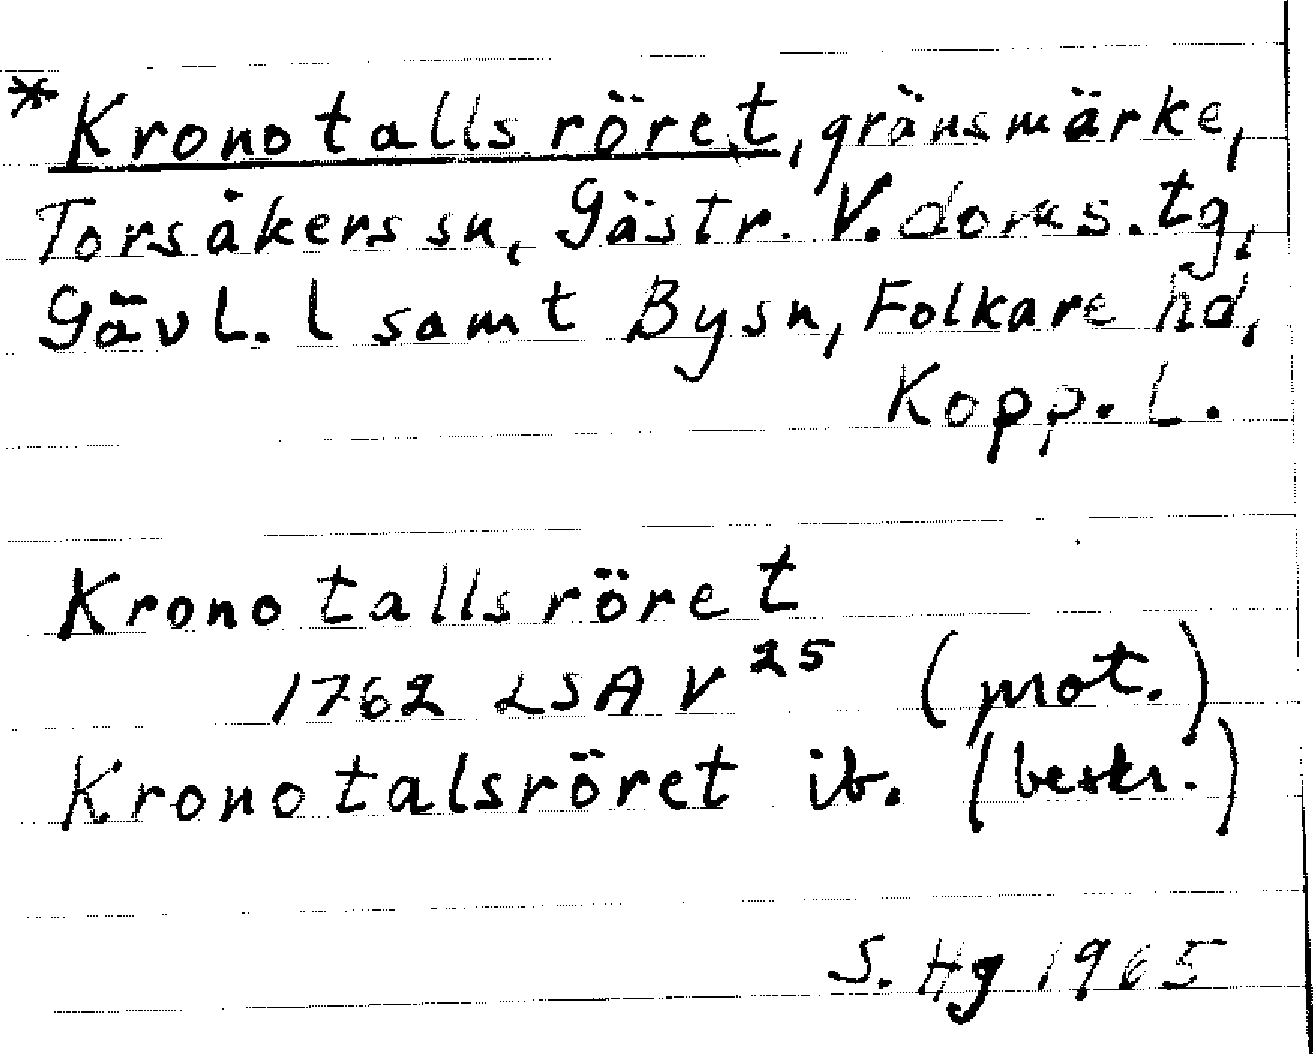 *Kronotallsröret, gränsmärke,
Torsåkers sn, Gästr. V. doms. tg,
Gävl. l samt By sn, Folkare hd,
Kopp. l.
Kronotallsröret
1762 LSA V 25 (prot.)
Kronotalsröret ib. (beskr.)
S. Hg 1965